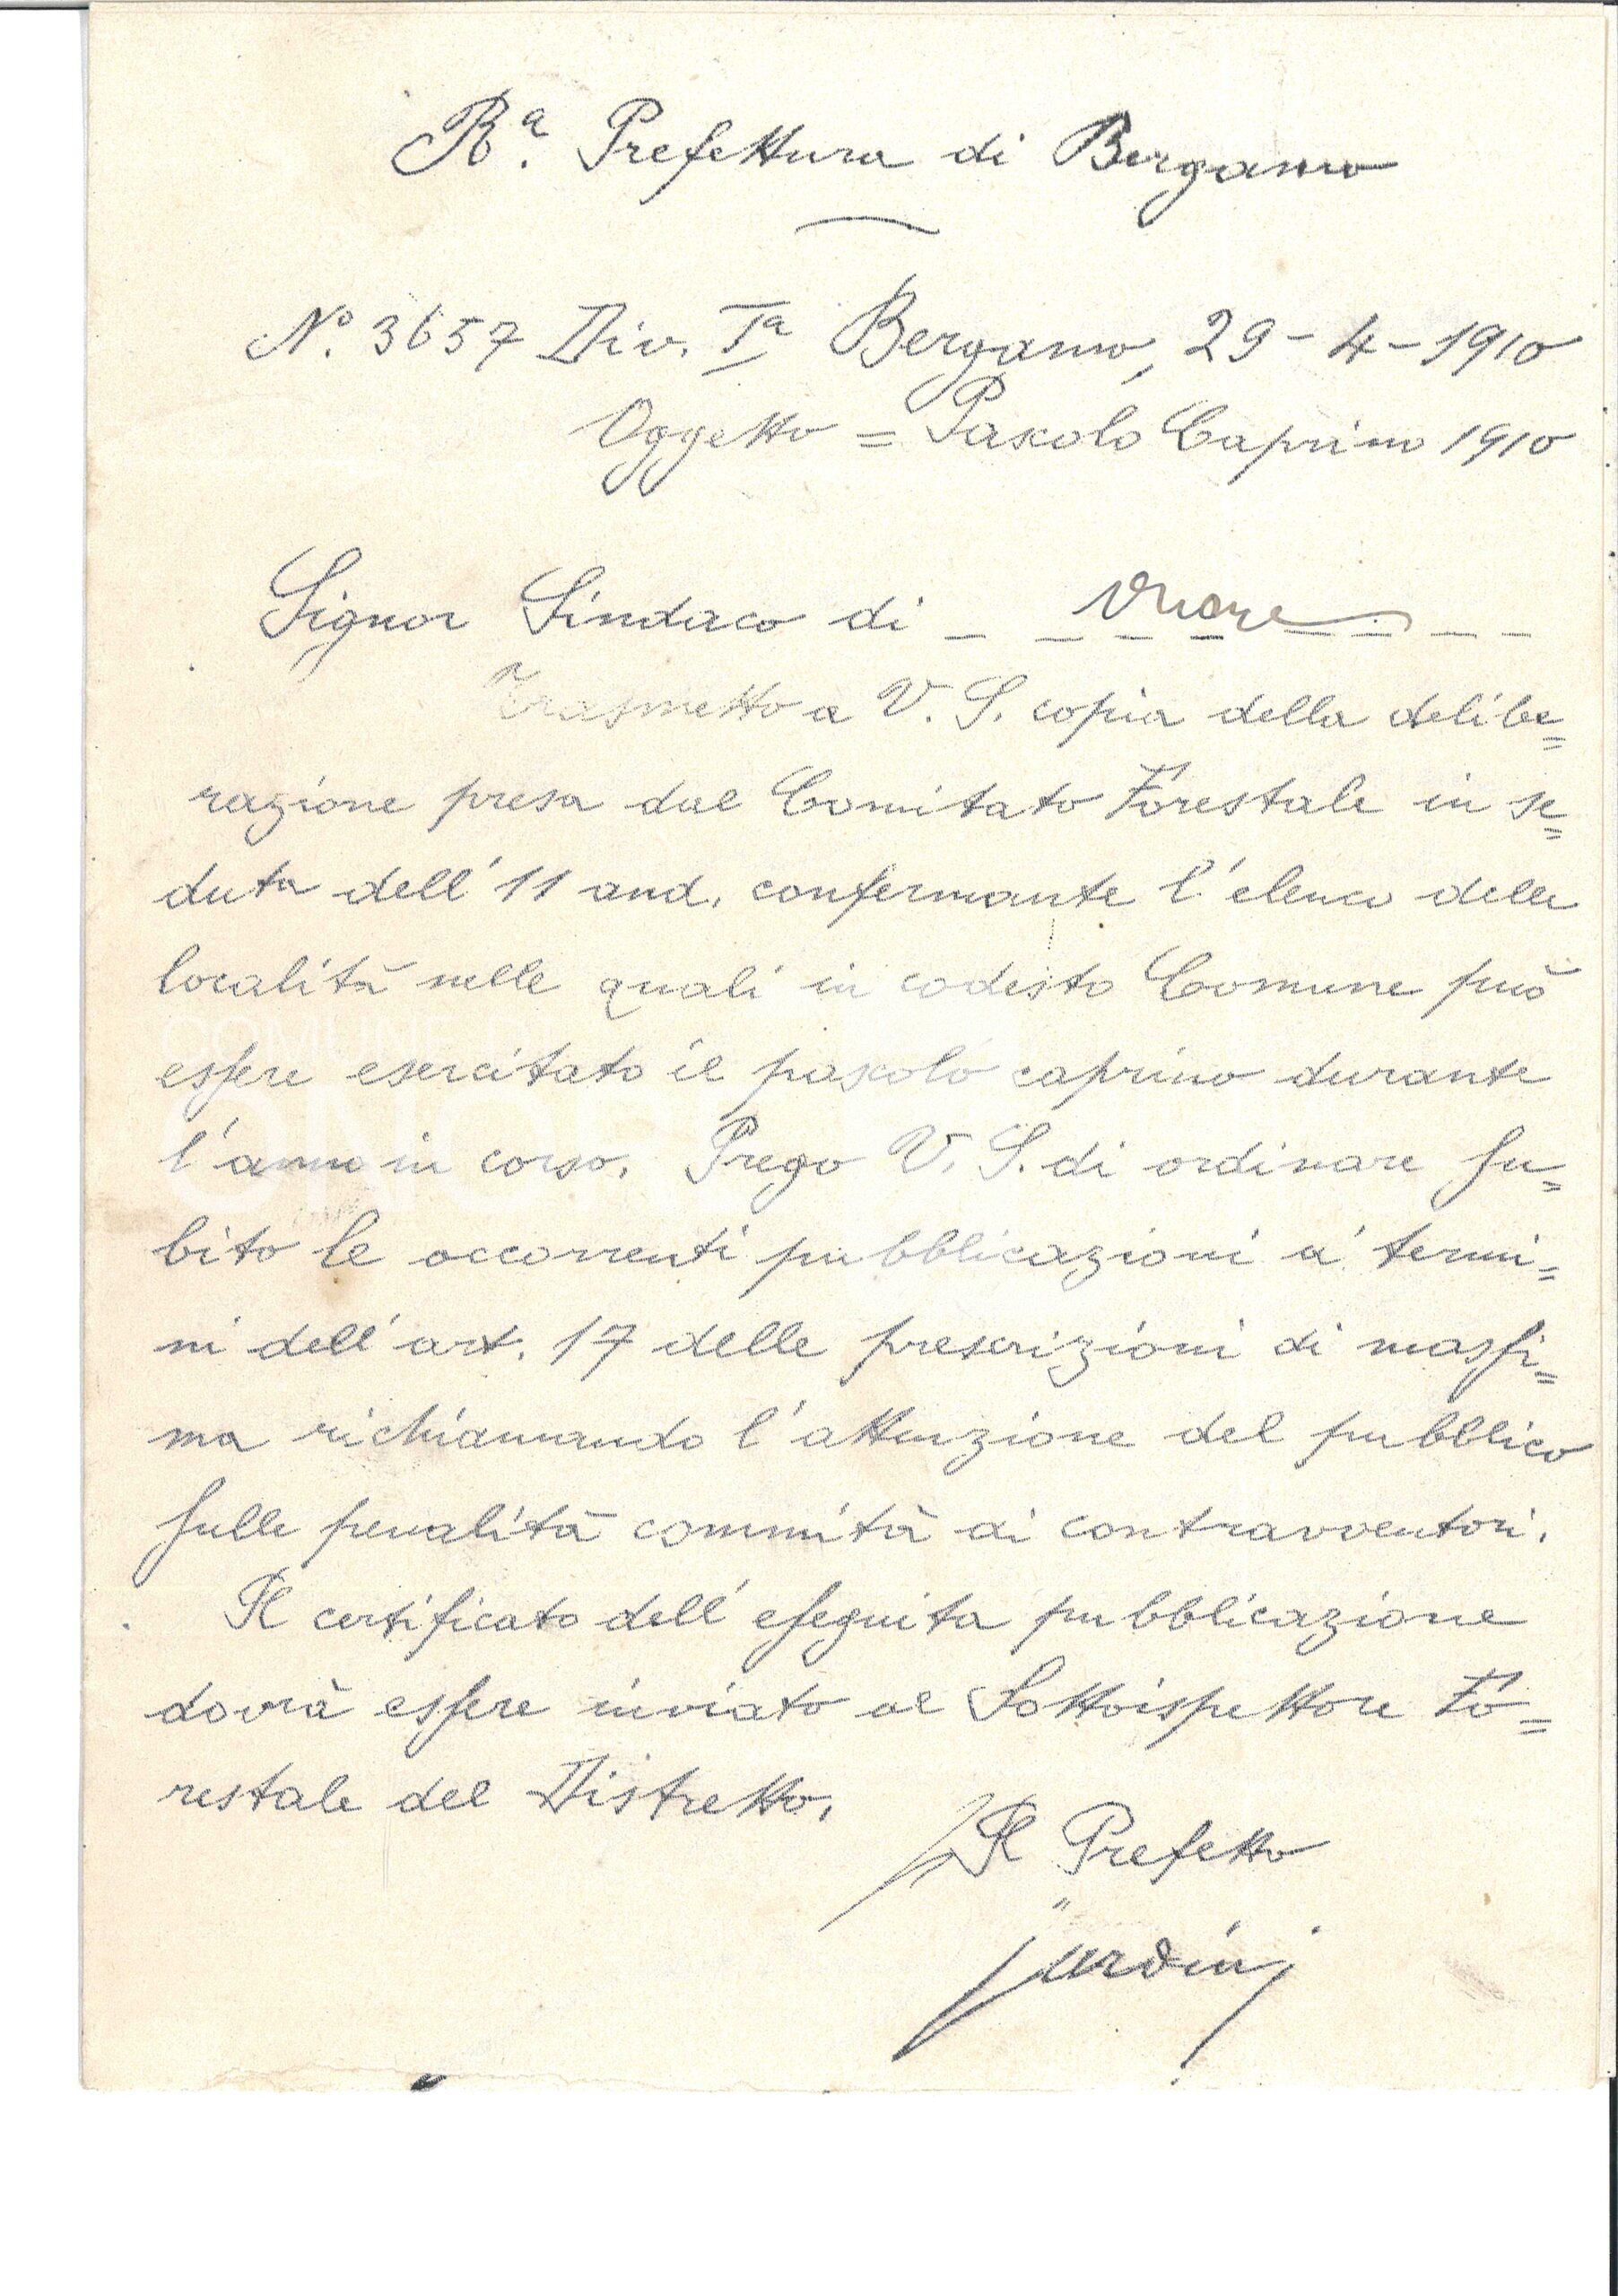 Rª. Prefettura di Bergamo
Nº. 3657 Div. Iª Bergamo, 29-4-1910
Oggetto = Pascolo Caprino 1910
Signor Sindaco di Onore
Trasmetto a V. S. copia della delibe=
razione presa dal Comitato Forestale in se=
duta dell'11 and. confermante l'elenco delle
località nelle quali in codesto Comune può
essere esercitato il pascolo caprino durante
l'anno in corso. Prego V. S. di ordinare su=
bito le occorrenti pubblicazioni a' termi=
ni dell'art. 17 delle prescrizioni di massi=
ma richiamando l'attenzione del pubblico
sulle penalità comnità ai contravventori.
Il certificato dell'eseguita pubblicazione
dovrà essere inviato al Sottoispettore Fo=
restale del Distretto.
Il Prefetto